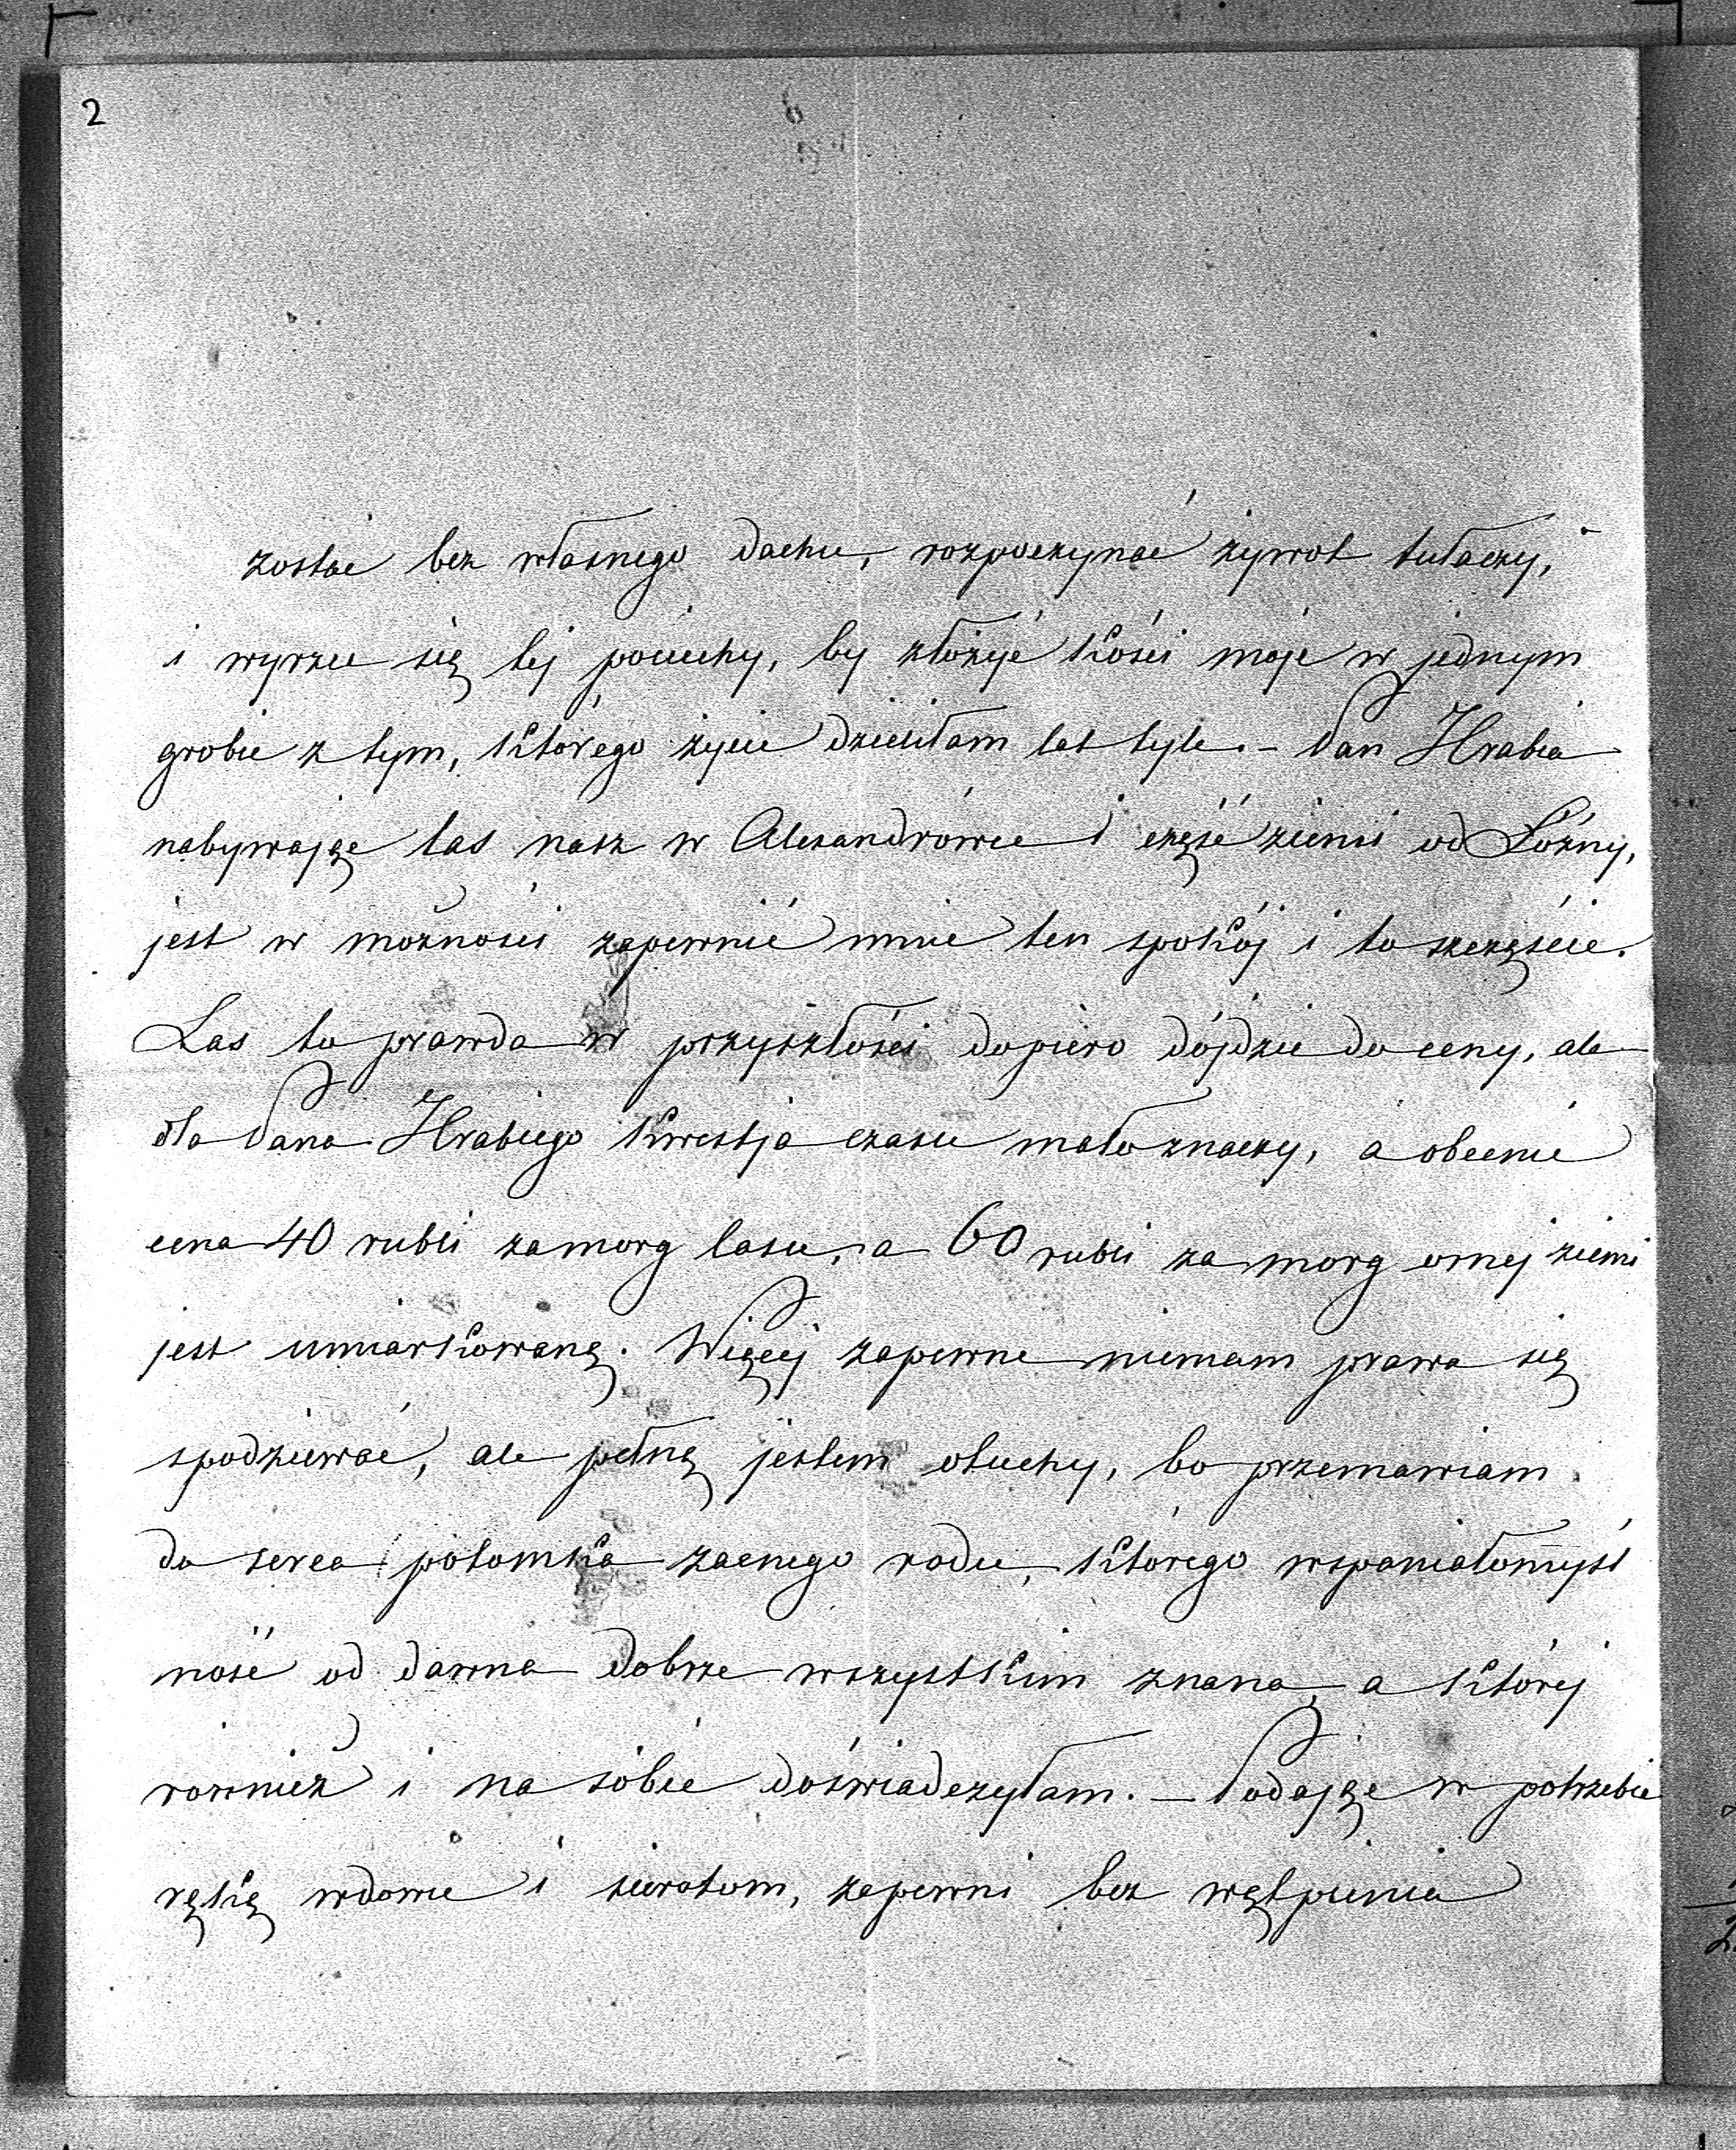 2
zostać bez własnego dachu, rozpoczynać żywot tułaczy,
i wyrzec się tej pociechy, by złożyć kości moje w jednym
grobie z tym, którego życie dzieliłam lat tyle. – Pan Hrabia
nabywając las nasz w Alexandrówce i część ziemi od Łózny,
jest w możności zapewnić mnie ten spokój i to szczęście.
Las to prawda w przyszłości dopiero dójdzie do ceny, ale
dla Pana Hrabiego kwestja czasu mało znaczy, a obecnie
cena 40 rubli za morg lasu, a 60 rubli za morg ornej ziemi
jest umiarkowaną. Więcej zapewne niemam prawa się
spodziewać, ale pełną jestem otuchy, bo przemawiam
do serca potomka zacnego rodu, którego wspaniałomyśl
ność od dawna dobrze wszystkim znana, a której
rownież i na sobie doświadczyłam. – Podając w potrzebie
rękę wdowie i sierotom, zapewni bez wątpienia